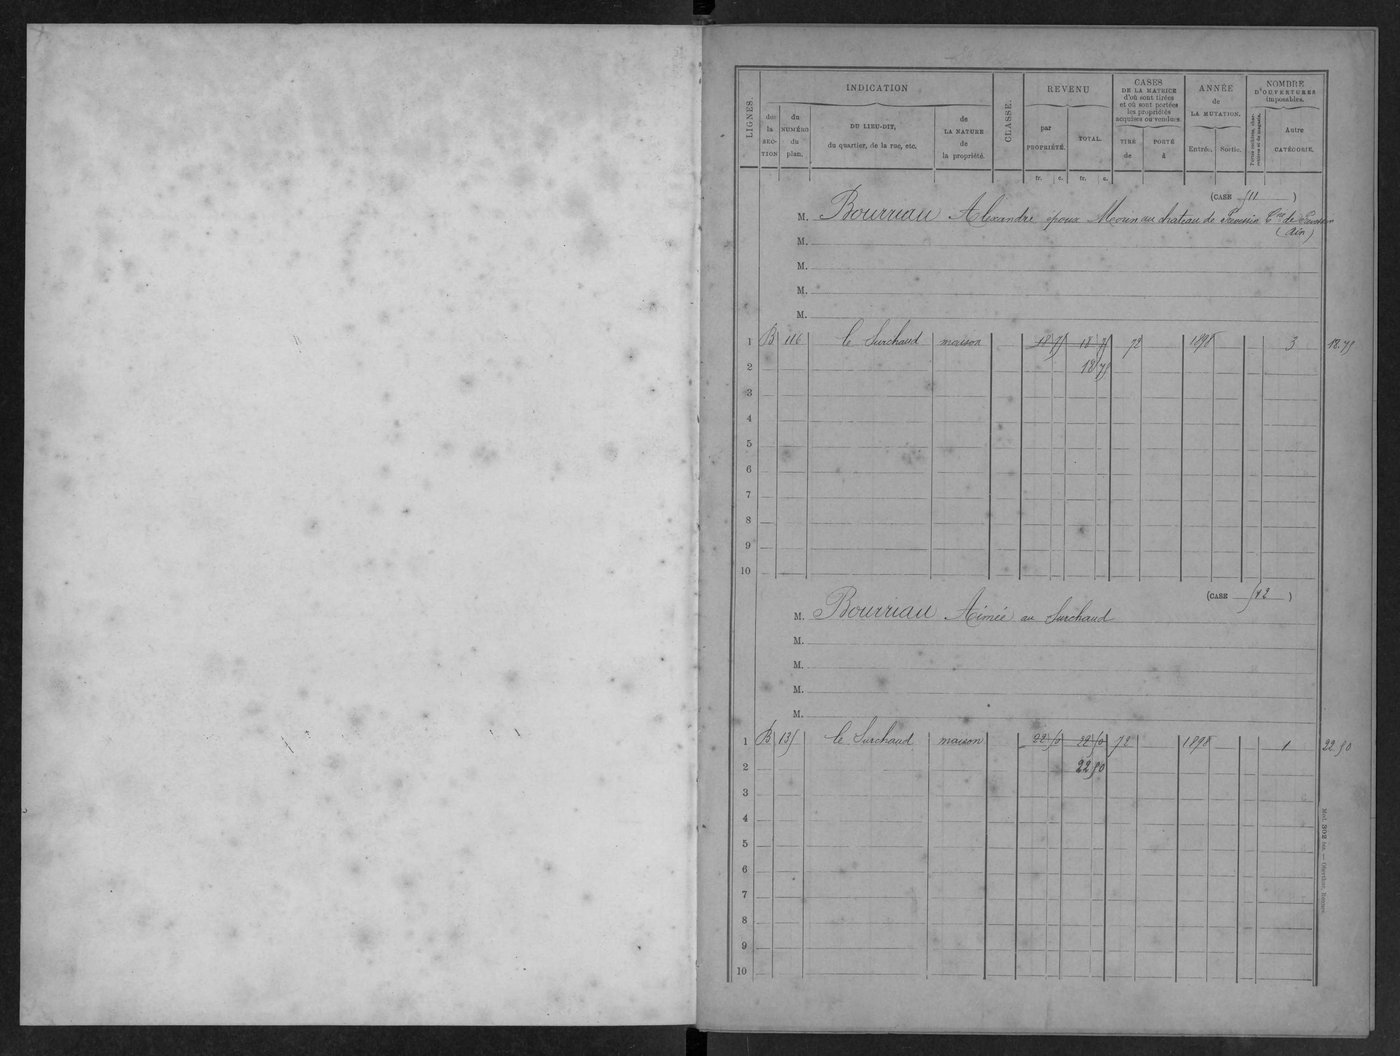 LIGNES.
INDICATION
des la SECTION
du NUMÉRO du plan.
DU LIEU-DIT, du quartier, de la rue, etc.
de LA NATURE de la propriété.
CLASSE.
REVENU
par PROPRIÉTÉ.
TOTAL.
fr. c. fr. c.
CASES DE LA MATRICE d'où sont tirées et où sont portées les propriétés acquises ou vendues
TIRÉ de
PORTÉ à
ANNÉE de LA MUTATION.
Entrée. Sortie.
NOMBRE D'OUVERTURES imposables.
Autre CATÉGORIE.
(CASE 511 )
M. Bourriau Alexandre époux Moun au chateau de
(Ain)
M.
M.
M.
M.
1 B 116 le Surchaud maison 18 75 18 75 72 1898 3 18.75
2 18 75
3
4
5
6
7
8
9
10
(CASE 512 )
M. Bourriau Aimée au Surchaud
M.
M.
M.
M.
1 B 135 le Surchaud maison 22 50 22 50 72 1898 1 22 50
2 22 50
3
4
5
6
7
8
9
10
Mod. 302 bis. — Oberthur, Rennes.